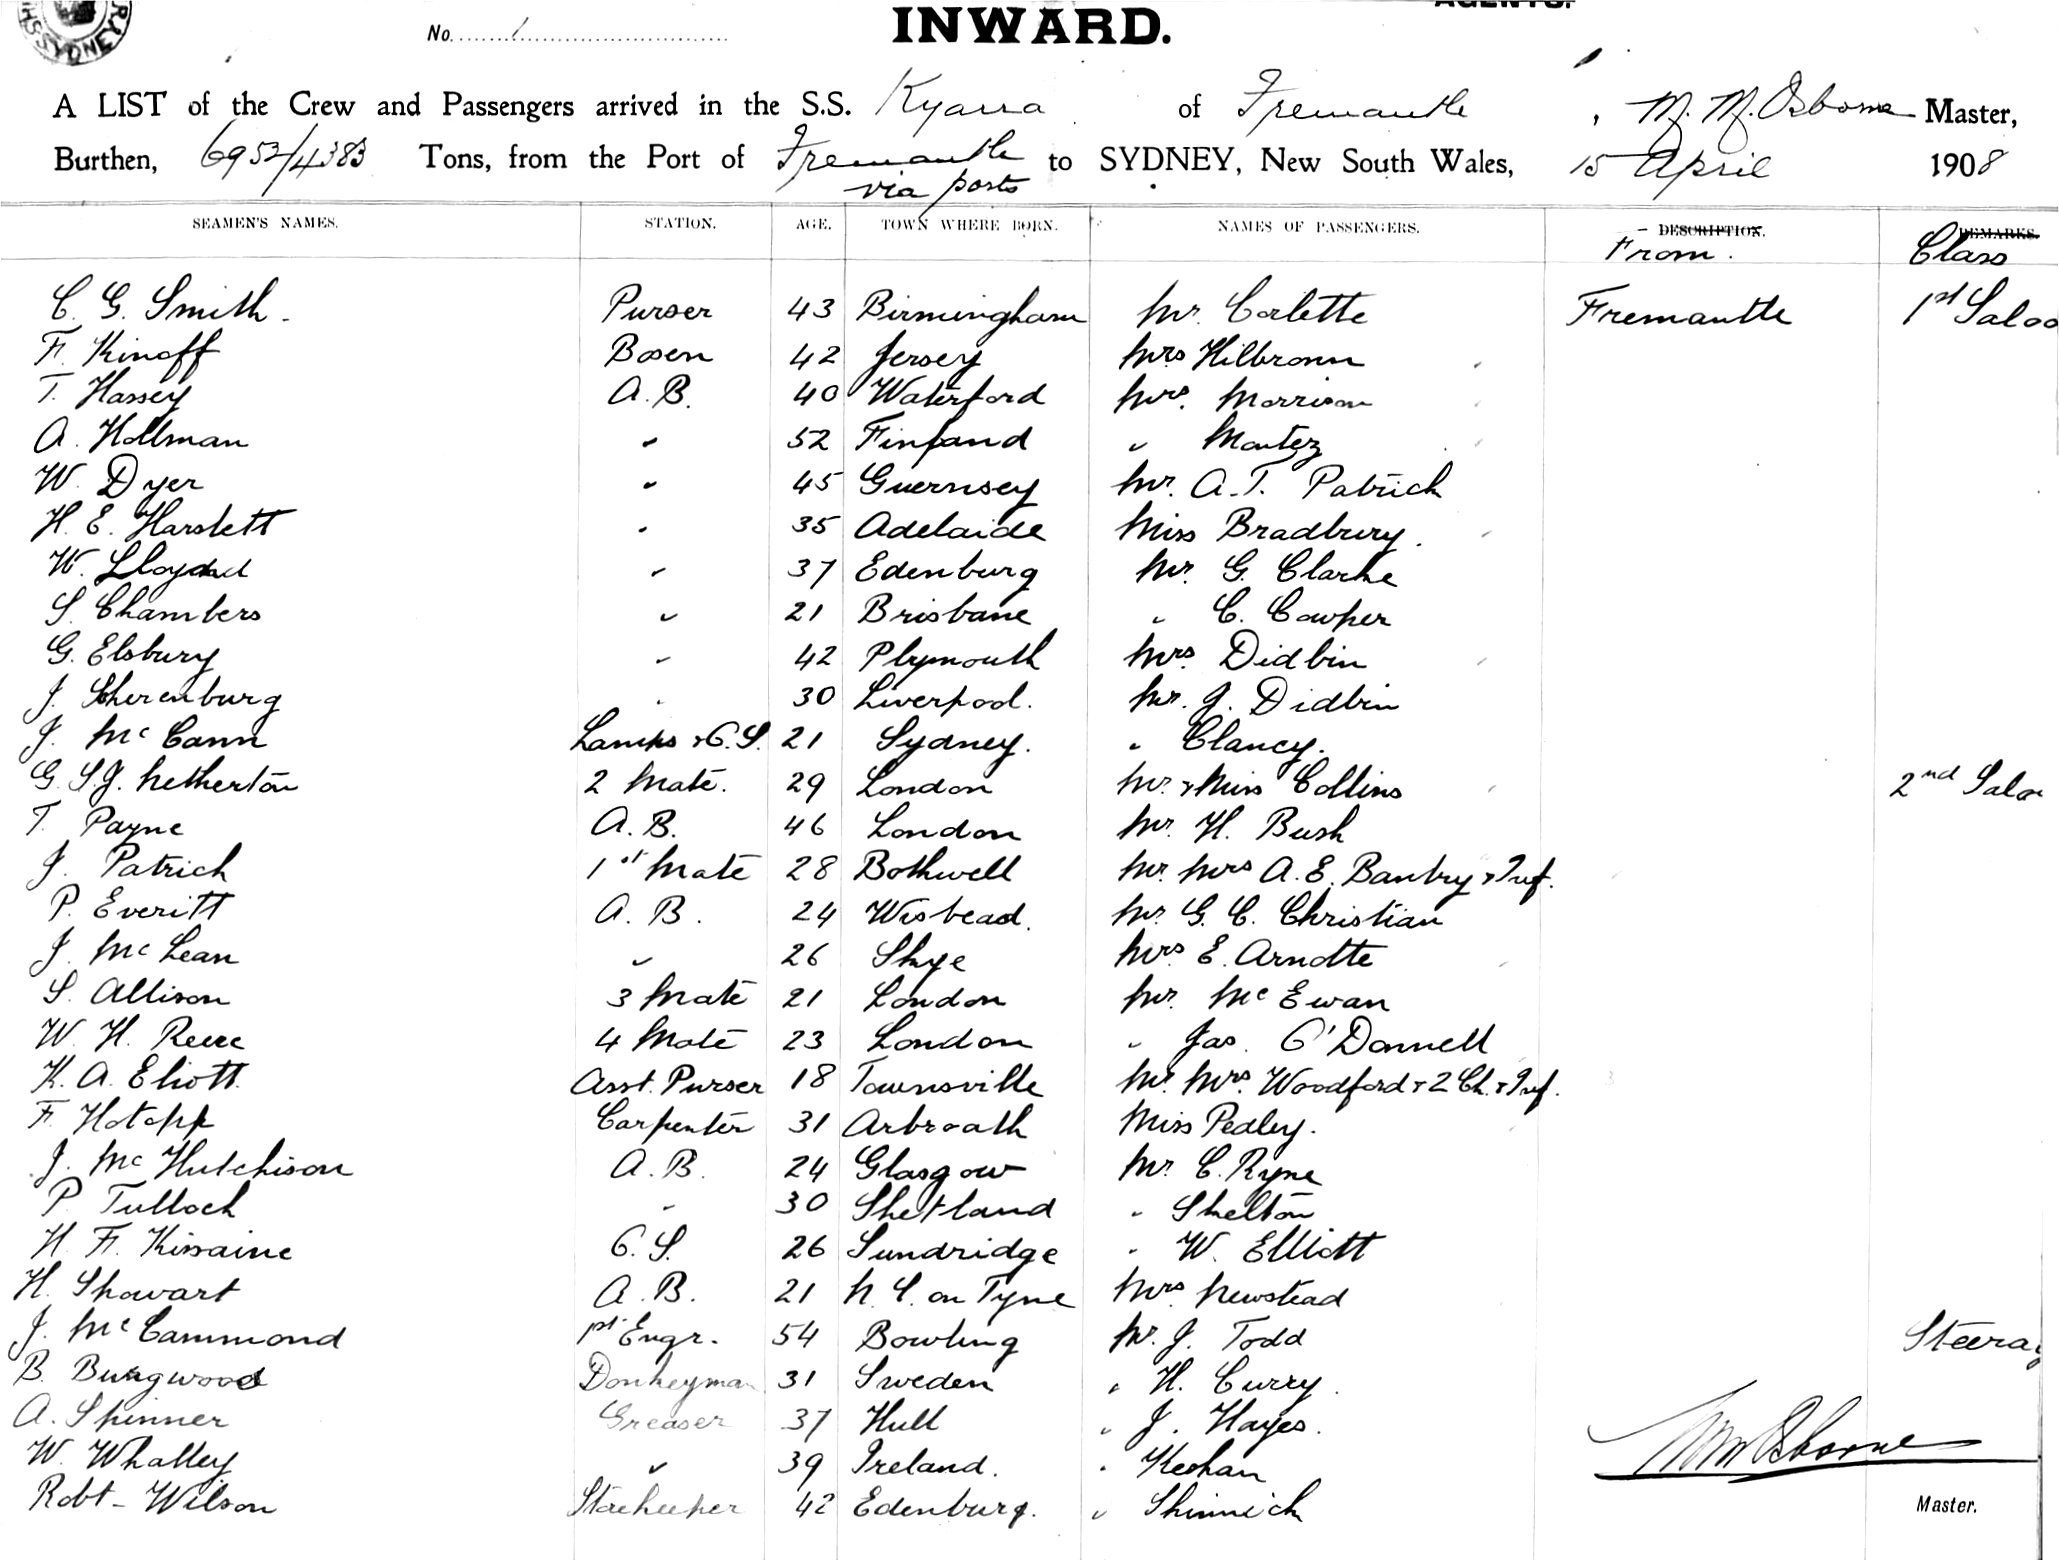 AGENTS.
SYDNEY
No. 1
INWARD.
A LIST of the Crew and Passengers arrived in the S.S. Kyarra of Fremantle, M. M. Osborne Master,
Burthen, 6953/4383 Tons, from the Port of Fremantle via ports to SYDNEY, New South Wales, 15 April 1908
SEAMEN'S NAMES. STATION. AGE. TOWN WHERE BORN. NAMES OF PASSENGERS. DESCRIPTION. REMARKS.
From. Class
C. G. Smith. Purser 43 Birmingham Mr. Corlette Fremantle 1st Saloo
F. Kinoff Bosen 42 Jersey Mrs Hilbronn
T. Hassey A.B. 40 Waterford Mrs. Morrison
A. Hollman " 52 Finland " Mantez
W. Dyer " 45 Guernsey Mr. A.T. Patrick
H. E. Harslett " 35 Adelaide Miss Bradbury.
W. Lloyd " 37 Edenburg Mr. G. Clarke
S. Chambers " 21 Brisbane " C. Cowper
G. Elsbury " 42 Plymouth Mrs. Didbin
J. Sherenburg " 30 Liverpool. Mr. J. Didbin
J. McCann Lamps & O.S. 21 Sydney. " Clancy.
G. S. J. Netherton 2 Mate. 29 London Mr. & Miss Collins 2nd Saloo
T. Payne A.B. 46 London Mr. H. Bush
J. Patrick 1st Mate 28 Bothwell Mr. Mrs A. E. Bantry & Inf.
P. Everitt A.B. 24 Wisbead. Mr. G. C. Christian
J. McLean " 26 Skye Mrs E. Arndtte
S. Allison 3 Mate 21 London Mr. McEwan
W. H. Reece 4 Mate 23 London " Jas. O'Donnell
K. A. Eliott. Asst. Purser 18 Townsville Mr. Mrs. Woodford & 2 Ch. & Inf.
F. Hotopp Carpenter 31 Arbroath Miss Pedley.
J. McHutchison A.B. 24 Glasgow Mr. C. Ryne
P. Tulloch " 30 Shetland " Skelton
H. F. Kissaine O.S. 26 Sundridge " W. Elliott
H. Showart A.B. 21 N. C. on Tyne Mrs Newstead
J. McCammond 1st Engr. 54 Bowling Mr. J. Todd Steerag
B. Bungwood Donkeyman 31 Sweden " H. Curry.
A. Skinner Greaser 37 Hull " J. Hayes.
W. Whalley " 39 Ireland. " Keohan
Robt- Wilson Storekeeper 42 Edenburg. " Shinnick
MM Osborne
Master.